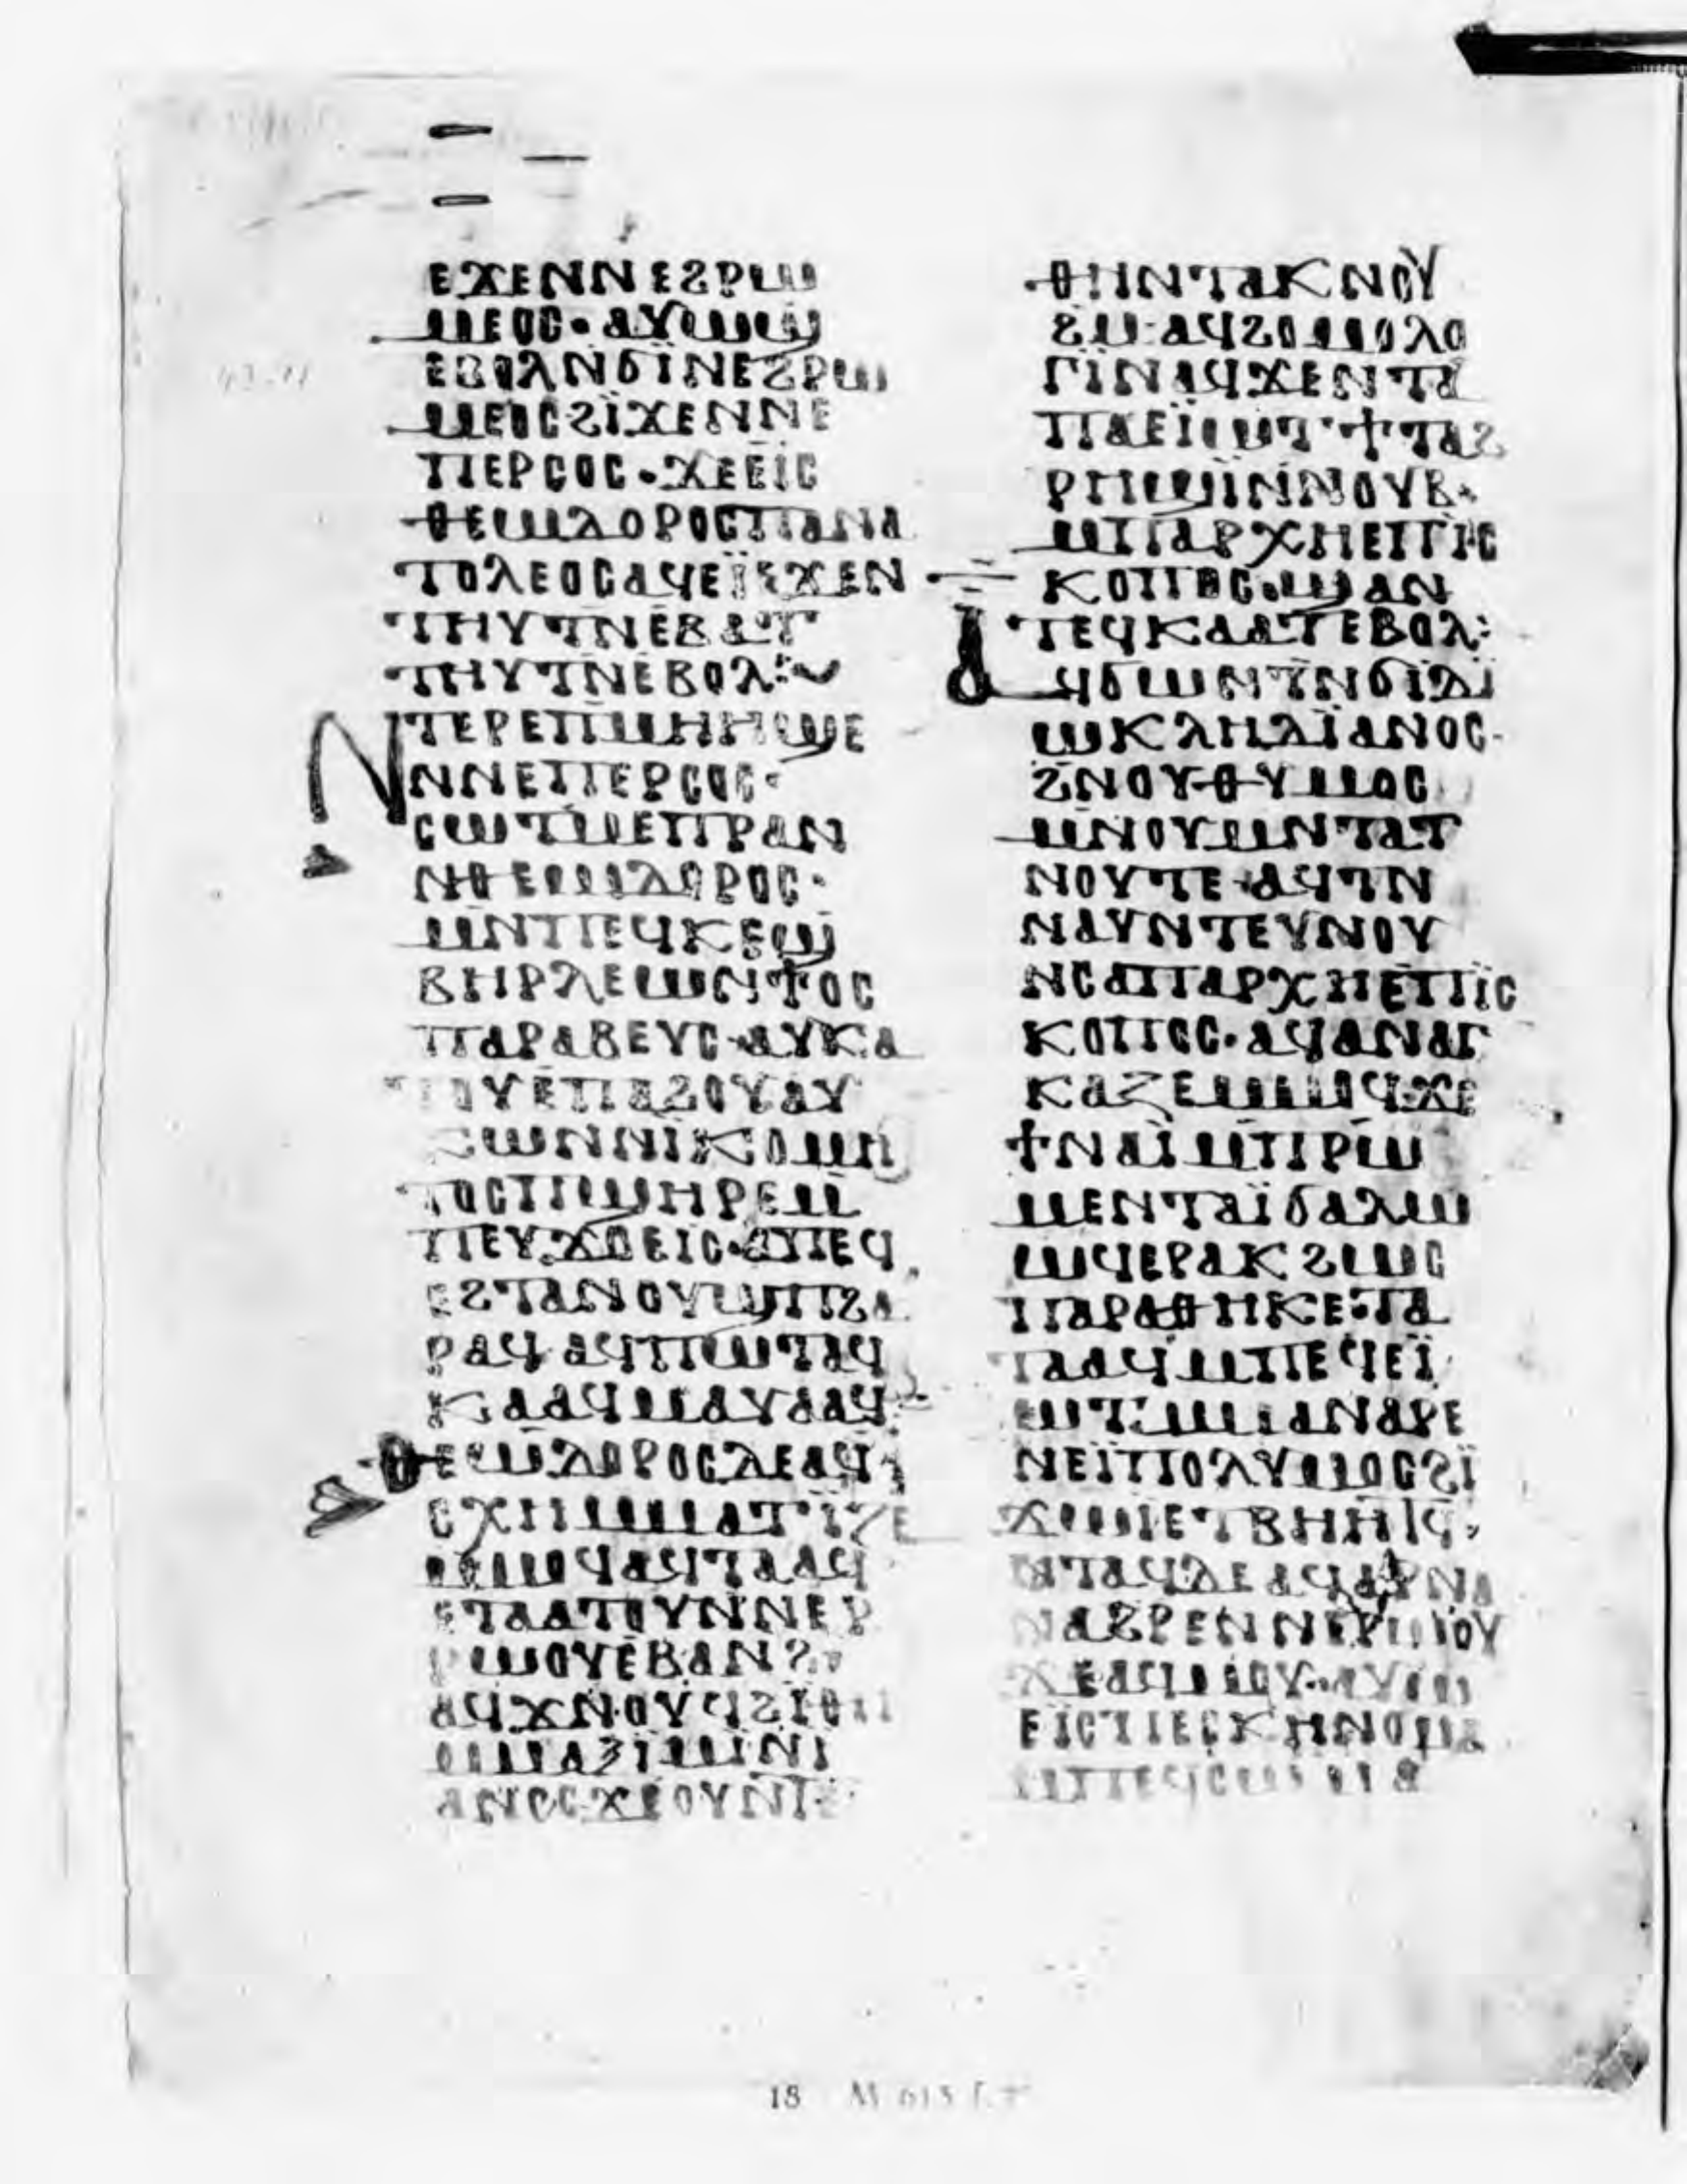 ⲉϫⲉⲛⲛⲉϩⲣⲱ
ⲙⲉⲟⲥ· ⲁⲩⲱϣ
ⲉⲃⲟⲗⲛ̄ϭⲓ̈ⲛⲉϩⲣⲱ
ⲙⲉⲟⲥϩⲓ̈ϫⲉⲛⲛⲉ
ⲡⲉⲣⲥⲟⲥ· ϫⲉⲉⲓⲥ
ⲑⲉⲱⲇⲟⲣⲟⲥⲡⲁⲛⲁ
ⲧⲟⲗⲉⲟⲥⲁϥⲉⲓ̈ⲉϫⲉⲛ
ⲧⲏⲩⲧⲛ̄ⲉⲃⲉⲧ
ⲧⲏⲩⲧⲛ̄ⲉⲃⲟⲗ:~
ⲛⲧⲉⲣⲉⲡⲙⲏⲏϣⲉ
ⲛⲛⲉⲡⲉⲣⲥⲟⲥ·
ⲥⲱⲧⲙ̄ⲉⲡⲣⲁⲛ
ⲛⲑⲉⲱⲇⲟⲣⲟⲥ·
ⲙⲛ̄ⲡⲉϥⲕⲉϣ
ⲃⲏⲣⲗⲉⲱⲛϯⲟⲥ
ⲡⲁⲣⲁⲃⲉⲩⲥ· ⲁⲩⲕⲁ
ⲧⲟⲩⲉⲡⲁϩⲟⲩⲁⲩ
ⲥⲱⲛⲛⲓⲕⲟⲙⲏ
ⲧⲟⲥⲡϣⲏⲣⲉⲙ̄
ⲡⲉⲩϫⲟⲉⲓⲥ· ⲁⲡⲉϥ
ⲉϩⲧⲁⲛⲟⲩϣⲡϩⲁ
ⲣⲁϥ· ⲁϥⲡⲱⲧⲁϥ
ⲕⲁⲁϥⲙⲁⲩⲁⲁϥ·
ⲑⲉⲱⲇⲟⲣⲟⲥⲇⲉⲁϥ
ⲥⲭⲏⲙⲙⲁⲧⲓ̈ⲍⲉ
ⲙⲙⲟϥⲁϥⲧⲁⲁϥ
ⲉⲧⲁⲁⲧⲟⲩⲛⲛⲉⲣ
ⲣⲱⲟⲩⲉⲃⲁⲛϩ
ⲁϥϫⲛⲟⲩϥϩⲓⲑⲏ
ⲙⲙⲁⲝⲓⲙⲓⲛⲓ
ⲁⲛⲟⲥ· ϫⲉⲟⲩⲛⲧ
ⲑⲏⲛⲧⲁⲕⲛⲟⲩ
ϩⲙ· ⲁϥϩⲟⲙⲟⲗⲟ
ⲅⲓ̈ⲛⲁϥϫⲉⲛⲧⲁ
ⲡⲁⲉⲓ̈ⲱⲧ· ϯⲧⲁϩ
ⲣⲙϣⲓ̈ⲛ̄ⲛⲟⲩⲃ·
ⲙⲡⲁⲣⲭⲏⲉⲡⲓ̈ⲥ
ⲕⲟⲡⲟⲥ· ϣⲁⲛ
ⲧⲉϥⲕⲁⲁⲧⲉⲃⲟⲗ:
ⲁϥϭⲱⲛⲧ̄ⲛϭⲓⲇⲓ̈
ⲱⲕⲗⲏⲇⲓ̈ⲁⲛⲟⲥ·
ϩⲛⲟⲩⲑⲩⲙⲟⲥ
ⲙⲛⲟⲩⲙⲛⲧⲁⲧ
ⲛⲟⲩⲧⲉ· ⲁϥⲧⲛ
ⲛⲁⲩⲛⲧⲉⲩⲛⲟⲩ
ⲛⲥⲁⲡⲁⲣⲭⲏⲉⲡⲓ̈ⲥ
ⲕⲟⲡⲟⲥ· ⲁϥⲁⲛⲁⲅ
ⲕⲁⲍⲉⲙⲙⲟϥ· ϫⲉ
ϯⲛⲁⲓ̈ⲙⲡⲣⲱ
ⲙⲉⲛⲧⲁⲓ̈ϭⲁⲗⲱ
ⲱϥⲉⲣⲁⲕϩⲱⲥ
ⲡⲁⲣⲁⲑⲏⲕⲉ· ⲧⲁ
ⲧⲁⲁϥⲙⲡⲉϥⲉⲓ̈
ⲱⲧ· ⲙⲙⲁⲛⲁⲣⲉ
ⲛⲉⲓ̈ⲡⲟⲗⲩⲙⲟⲥϩⲓ̈
ϫⲱⲓ̈ⲉⲧⲃⲏⲏⲧϥ·
ⲛⲧⲁϥⲇⲉⲁϥⲁⲣⲛⲁ
ⲛⲁϩⲣⲉⲛⲛⲉⲣⲱⲟⲩ
ϫⲉⲁϥⲙⲟⲩ· ⲁⲩⲱ
ⲉⲓⲥⲡⲉⲥⲕⲏⲛⲟⲙⲁ
ⲙⲡⲉϥⲥⲱⲙⲁ
18 M 613 f.